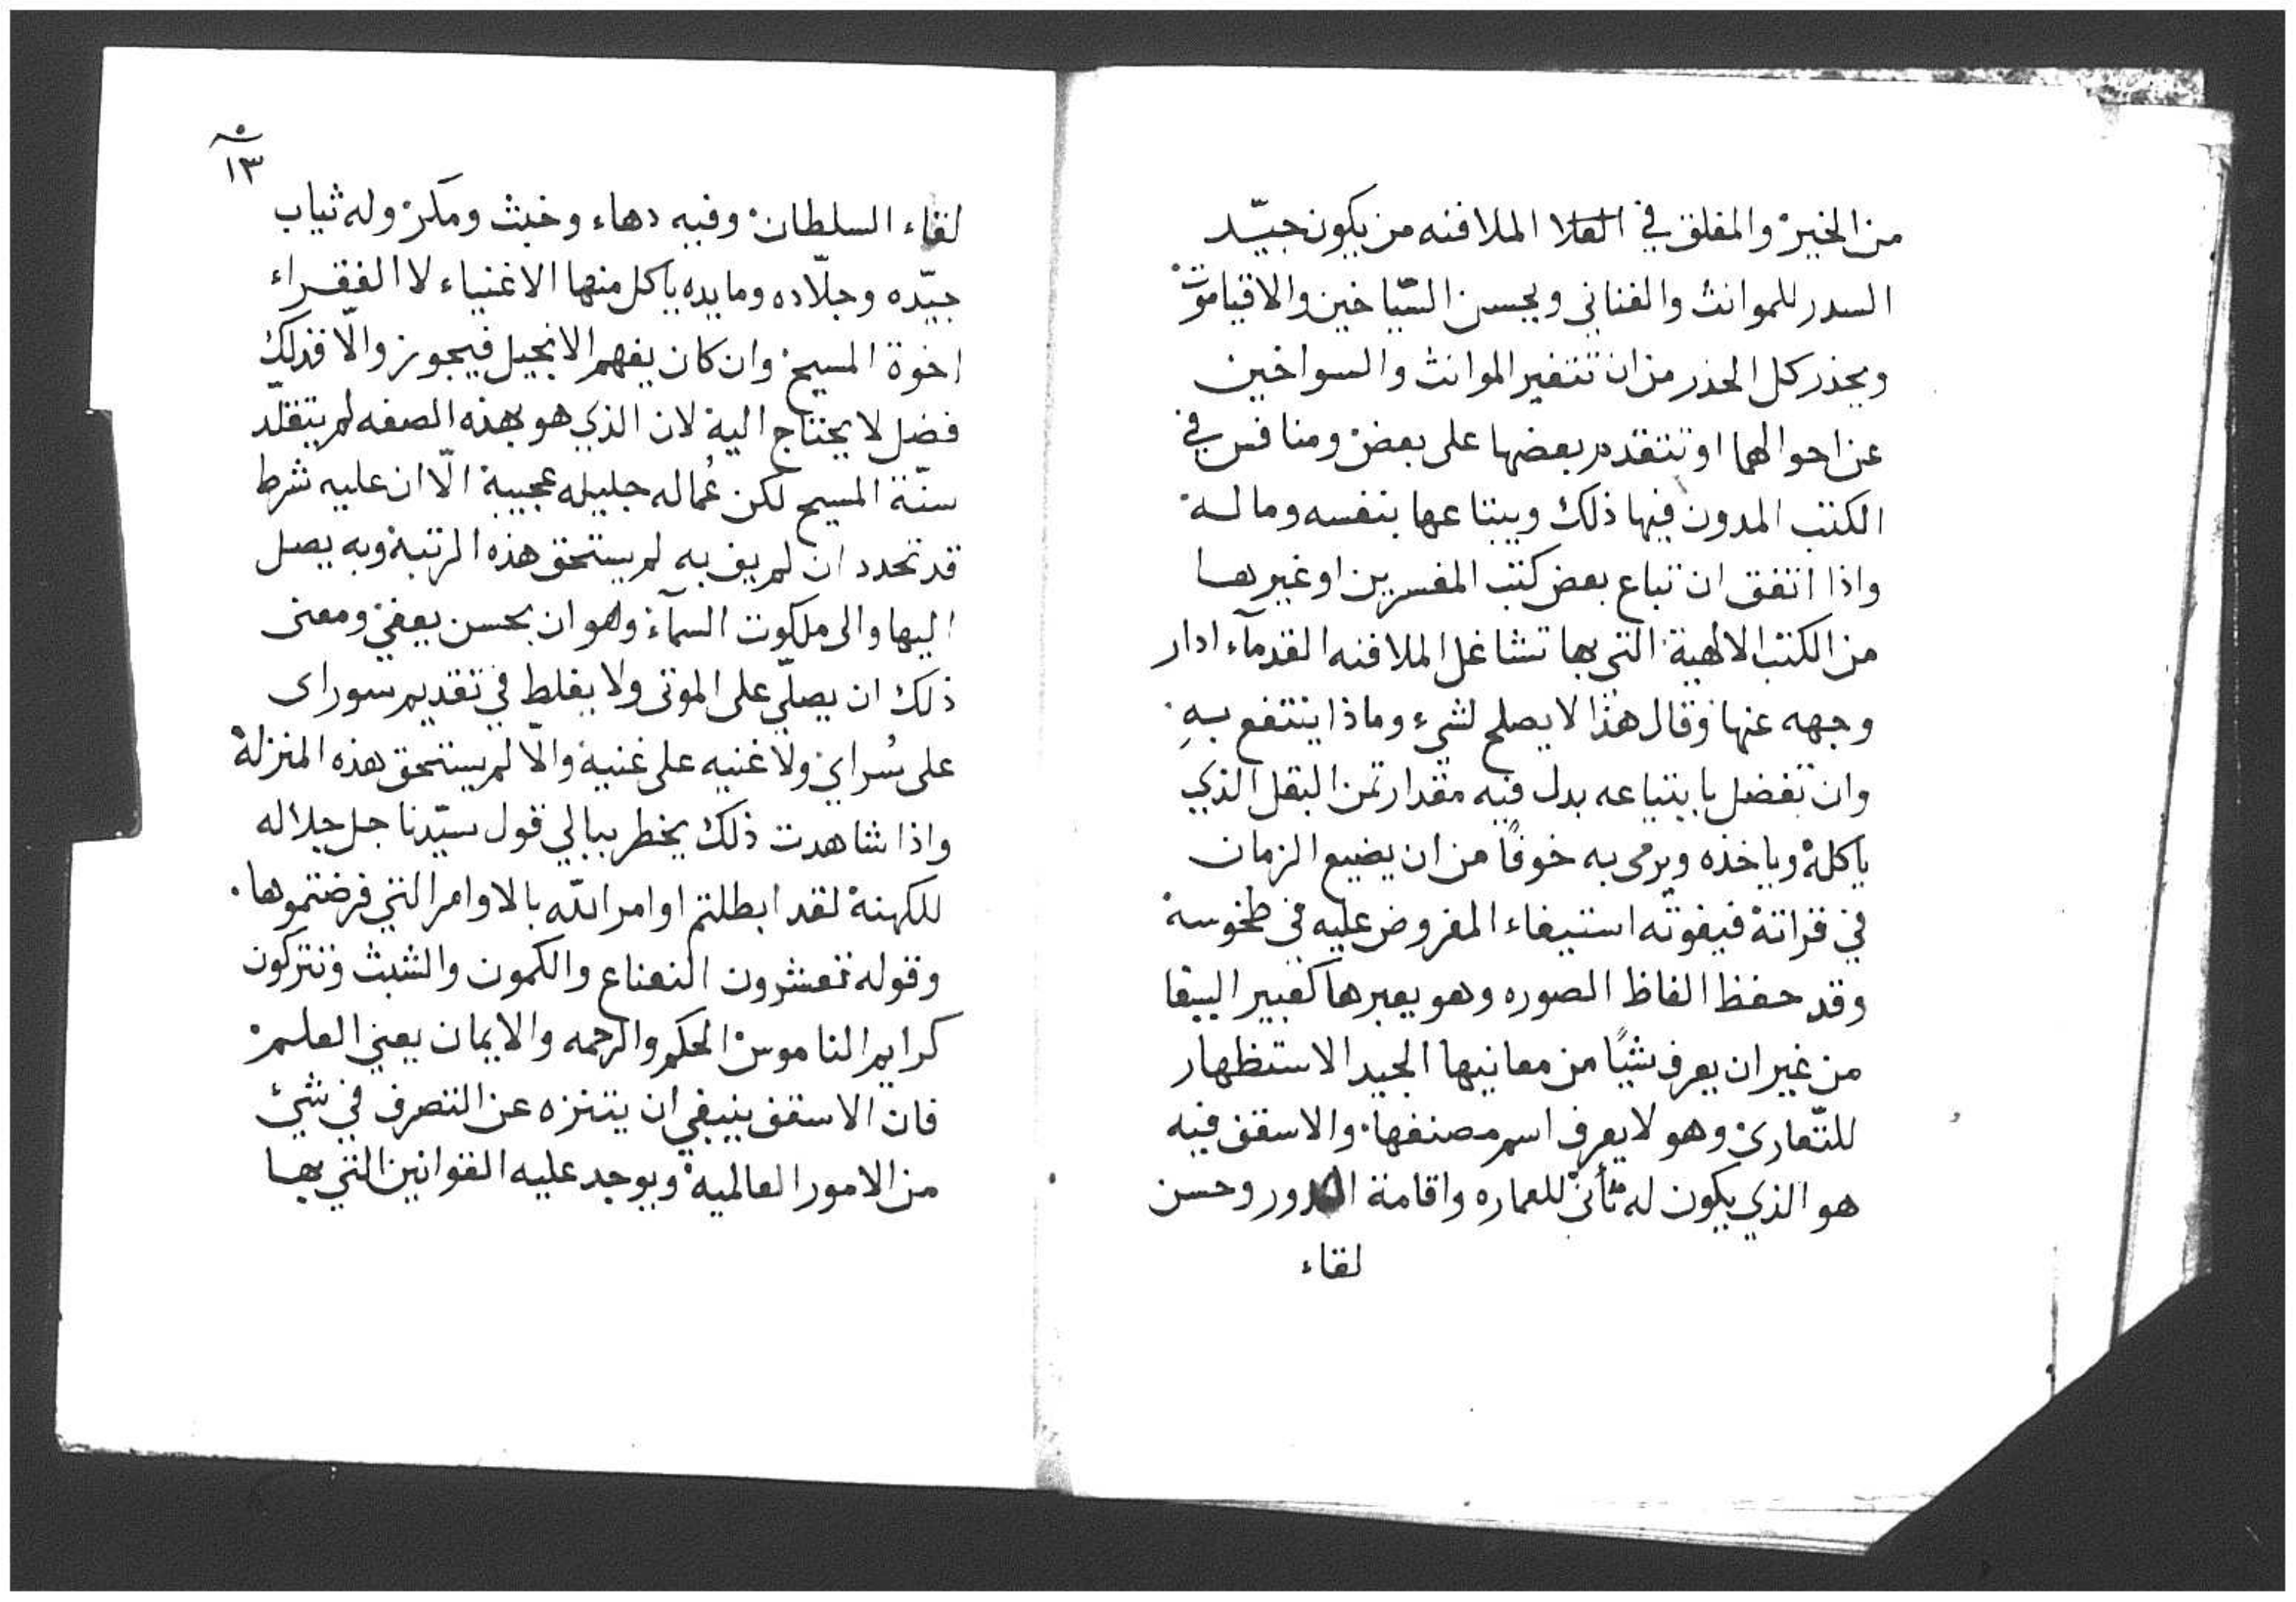 من الخير والمفلق في العلا الملافنه من يكون جيّد
السدر للموانث والفناني ويحسن السّياخين والاقياموث
ويحذر كل الحذر من ان تتغير الموانث والسواخين
عن احوالهما او تتقدم بعضها على بعض ومنافس في
الكتب المدون فيها ذلك ويبتاعها بنفسه وماله
واذا اتفق ان تباع بعض كتب المفسرين او غيرها
من الكتب الالهية التي بها تشاغل الملافنه القدمآء ادار
وجهه عنها وقال هذا لا يصلح لشيء وماذا ينتفع بهِ
وان تفضل بابتياعه بدل فيه مقدار ثمن البقل الذي
ياكله وياخذه ويرمى به خوفًا من ان يضيع الزمان
في قراته فيفوته استيفاء المفروض عليه في طخوسه
وقد حفظ الفاظ الصوره وهو يعبرها كعبير الببغا
من غير ان يعرف شيًا من معانيها الجيد الاستظهار
للتّعاري وهو لا يعرف اسم مصنفها. والاسقف فيه
هو الذي يكون له تأنٍ للعماره واقامة الدور وحسن
لقاء
١٣
لقاء السلطان وفيه دهاء وخبث ومكر وله ثياب
جيّده وجلّاده ومايده ياكل منها الاغنياء لا الفقراء
اخوة المسيح وان كان يفهم الانجيل فيجوز والّا فذلك
فضل لا يحتاج اليه لان الذي هو بهذه الصفه لم يتقلّد
سنّة المسيح لكن عُماله جليله عجيبة الّا ان عليه شرط
قد تحدد ان لم يف به لم يستحق هذه الرتبة وبه يصل
اليها والى ملكوت السمآء وهو ان يحسن يعفي ومعنى
ذلك ان يصلّي على الموتى ولا يغلط في تقديم سوراى
على سُراي ولا غنيه على غنية والّا لم يستحق هذه المنزلة
واذا شاهدت ذلك يخطر ببالي قول سيّدنا جل جلاله
للكهنة لقد ابطلتم اوامر الله بالاوامر التي فرضتموها.
وقوله تعشرون النعناع والكمون والشبث وتتركون
كرايم الناموس الحكم والرحمه والايمان يعني العلم
فان الاسقف ينبغي ان يتنزه عن التصرف في شئ
من الامور العالميه ويوجد عليه القوانين التي بها